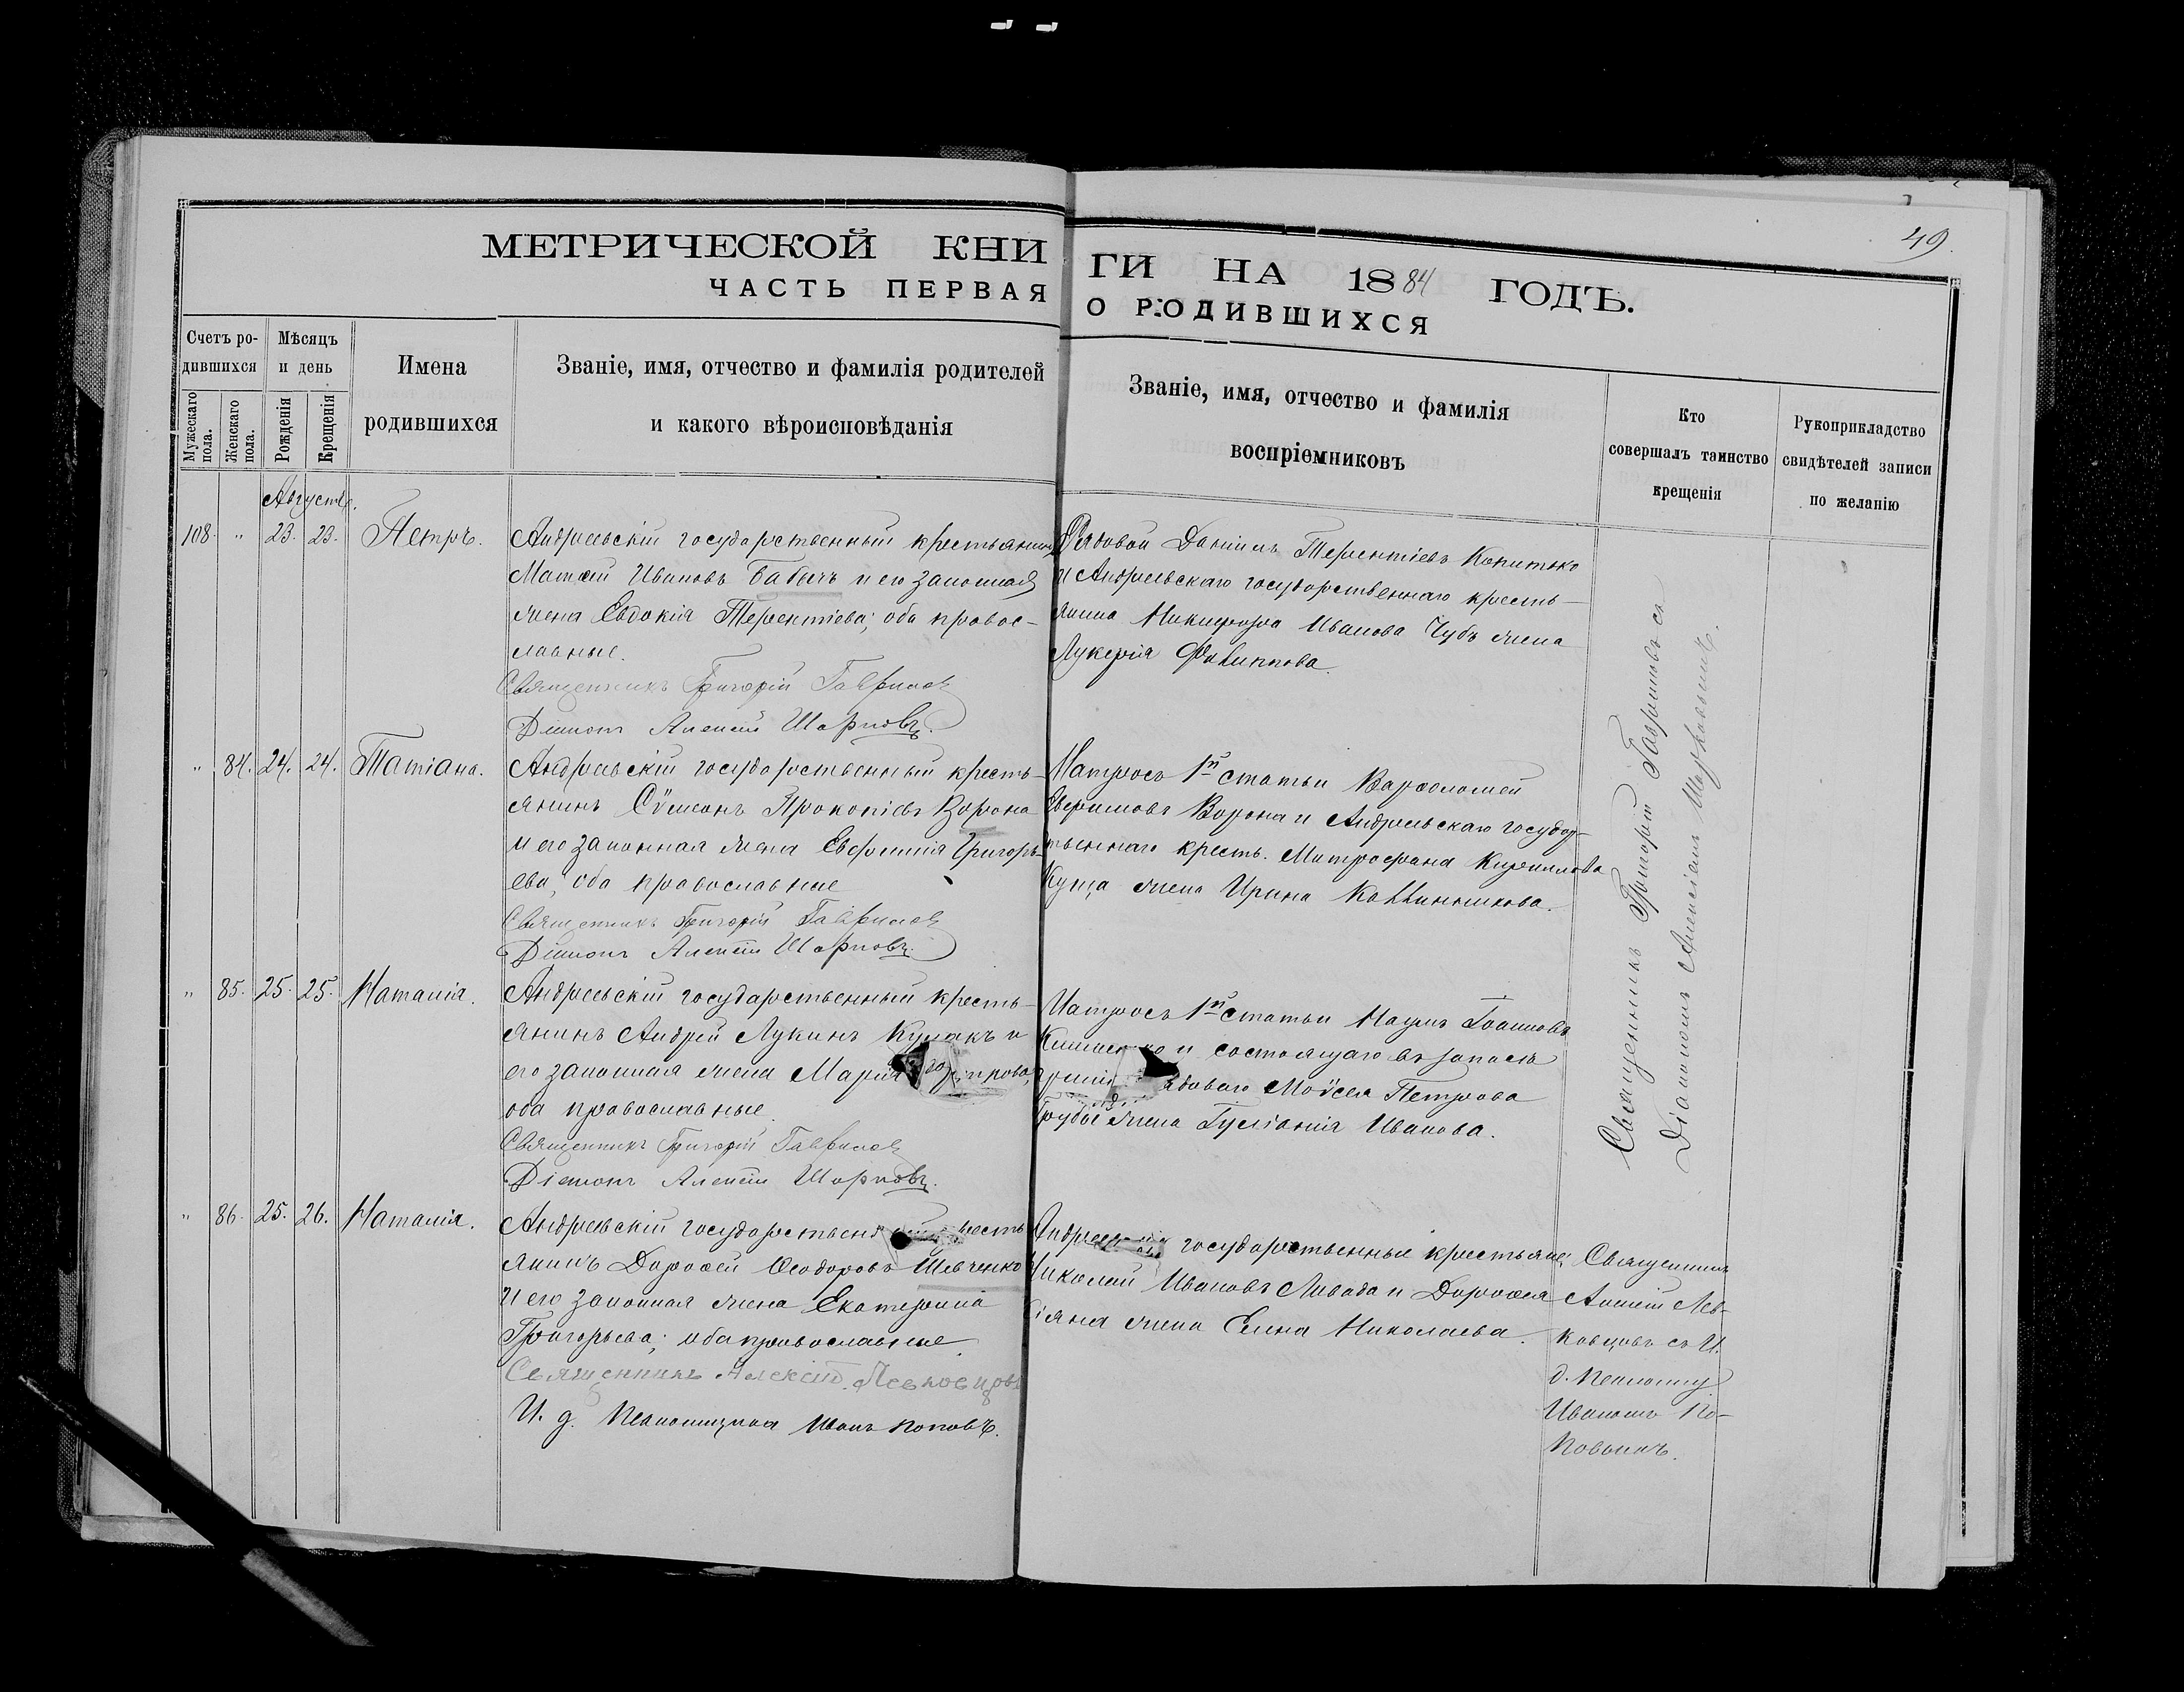 49.
МЕТРИЧЕСКОЙ КНИГИ НА 1884 ГОДЪ.
ЧАСТЬ ПЕРВАЯ О РОДИВШИХСЯ
Счетъ родившихся
Мужескаго пола.
Женскаго пола.
Мѣсяцъ и день
Рожденія
Крещенія
Имена
родившихся
Званіе, имя, отчество и фамилія родителей
и какого вѣроисповѣданія
Званіе, имя, отчество и фамилія
воспріемниковъ
Кто
совершалъ таинство
крещенія
Рукоприкладство
свидѣтелей записи
по желанію
Августъ.
108. " 23. 23. Петръ.
Андреевскій государственный крестьянинъ
Матѳей Ивановъ Бабычъ и его законная
жена Евдокія Терентіева; оба правос-
лавные.
Священникъ Григорій Гавриловъ
Діаконъ Алексѣй
Рядовой Даніилъ Терентіевъ Копитько
и Андреевскаго государственнаго кресть-
янина Никифора Иванова Чубъ жена
Лукерія Филиппова.
" 84. 24. 24. Татіана.
Андреевскій государственный кресть-
янинъ Сѵмеонъ Прокопіевъ Ворона
и его законная жена Евфимія Григорь-
ева; оба православные
Священникъ Григорій Гавриловъ
Діаконъ Алексѣй
Матросъ 1й статьи Варѳоломей
Ворона и Андреевскаго государ-
ственнаго кресть. Митрофана Кириллова
Куца жена Ирина Калинникова.
" 85. 25. 25. Наталія.
Андреевскій государственный кресть-
янинъ Андрей Лукинъ Кулакъ и
его законная жена Марія
оба православные.
Священникъ Григорій Гавриловъ
Діаконъ Алексѣй
Матросъ 1й статьи Наумъ Іоанновъ
и состоящаго въ запасѣ
рядоваго Моѵсея Петрова
жена Іуліанія Иванова.
Священникъ Григорій Гавриловъ съ
Діакономъ Алексіемъ
" 86. 25. 26. Наталія.
Андреевскій государственный кресть
янинъ Дороѳей Ѳеодоровъ Шевченко
и его законная жена Екатерина
Григорьева; оба православные.
Священникъ Алексій Левковцовъ
И. д. Псаломщика Иванъ Поповъ.
Андреевскіе государственные крестьяне:
Николай Ивановъ Ливада и Дороѳея
жена Елена Николаева.
Священникъ
Алексій Лев-
ковцовъ съ И.
д. Псаломщ.
Иваномъ По-
повымъ.